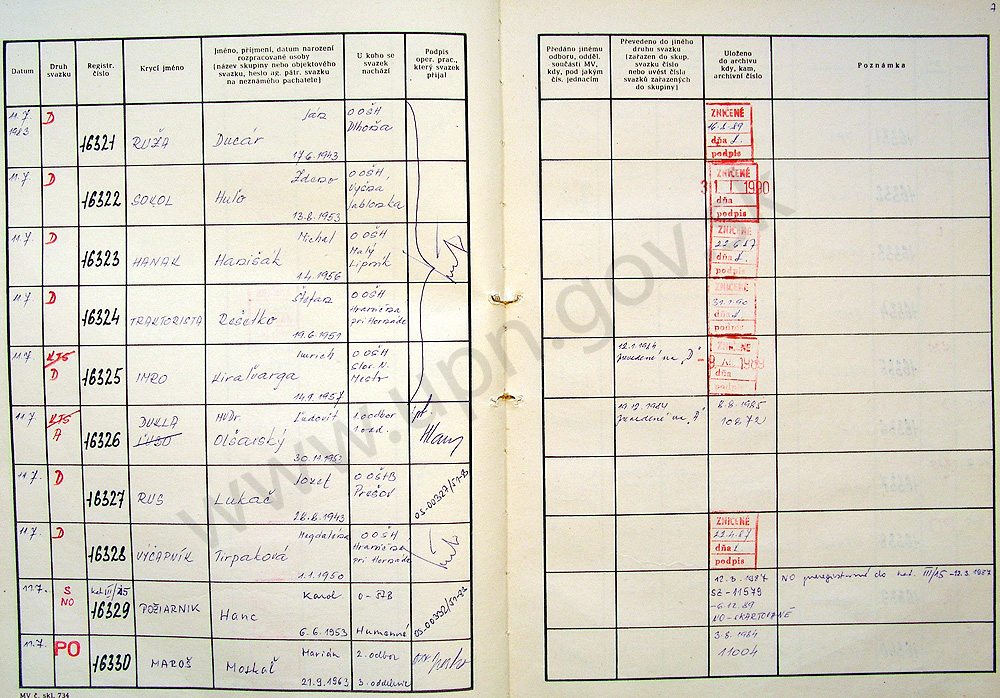 7
Datum
Druh svazku
Registr. číslo
Krycí jméno
Jméno, příjmení, datum narození rozpracované osoby (název skupiny nebo objektového svazku, heslo ag. pátr. svazku na neznámého pachatele)
U koho se svazek nachází
Podpis oper. prac., který svazek přijal
Předáno jinému odboru, odděl. součásti MV, kdy, pod jakým čís. jednacím
Převedeno do jiného druhu svazku (zařazen do skup. svazku číslo nebo uvést čísla svazků zařazených do skupiny)
Uloženo do archivu kdy, kam, archivní číslo
Poznámka
11.7. 1983 D 16321 RUŽA Ján Ducár 17.6.1943 OOŠH Dlhoňa
ZNIČENÉ 16.8.89 dňa podpis
11.7. D 16322 SOKOL Huťo 13.8.1953 OOŠH, Vyšná Jablonka
ZNIČENÉ 31 1 1990 dňa podpis
11.7. D 16323 HANAK Michal Hanišák 1.4.1956 OOŠH Malý Lipník
ZNIČENÉ 22.6.87 dňa podpis
11.7. D 16324 TRAKTORISTA Štefan Rešetko 19.6.1951 OOŠH Hraničná pri Hornáde
ZNIČENÉ 31.1.90 dňa podpis
11.7. KTS D 16325 IMRO Imrich Kiraľvarga 14.9.1957 OOŠH Slov. N. Mesto
12.1.1984 prevedené na "D"
dňa podpis
11.7. KTS A 16326 DUKLA MUDr. Ľudovít Olšavský 30.11.1953 1. odbor 1. odd.
19.12.1984 prevedené na "A"
2.8.1985 10872
11.7. D 16327 RUS Jozef Lukač 28.8.1943 OOŠTB Prešov OS-00327/51-83
11.7. D 16328 VÝČAPNÍK Magdaléna Tirpaková 1.1.1950 OOŠH Hraničná pri Hornáde
ZNIČENÉ 22.4.87 dňa podpis
11.7. S NO kat III/15 16329 POŽIARNIK Karol Hanc 6.6.1953 O-ŠTB Humenné OS-00332/51-83
12.3.1987 SZ-11579 -6.12.89 NO-SKARTOVANÉ
NO preregistrované do kat. III/15 -12.3.1987
11.7. PO 16330 MAROŠ Marián Moskaľ 21.9.1963 2. odbor 3. oddelenie
3.8.1984 11004
MV č. skl. 734
www.upn.gov.sk